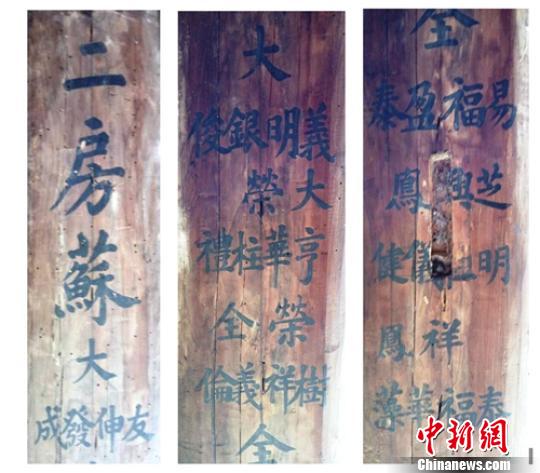 二房蘇大
友伸發成
大
義明銀俊
大榮
亨華柱禮
榮全
樹祥義倫
全
全
易福盈泰
芝興鳳
明儀健
祥鳳
春福華藻
中新网
Chinanews.com